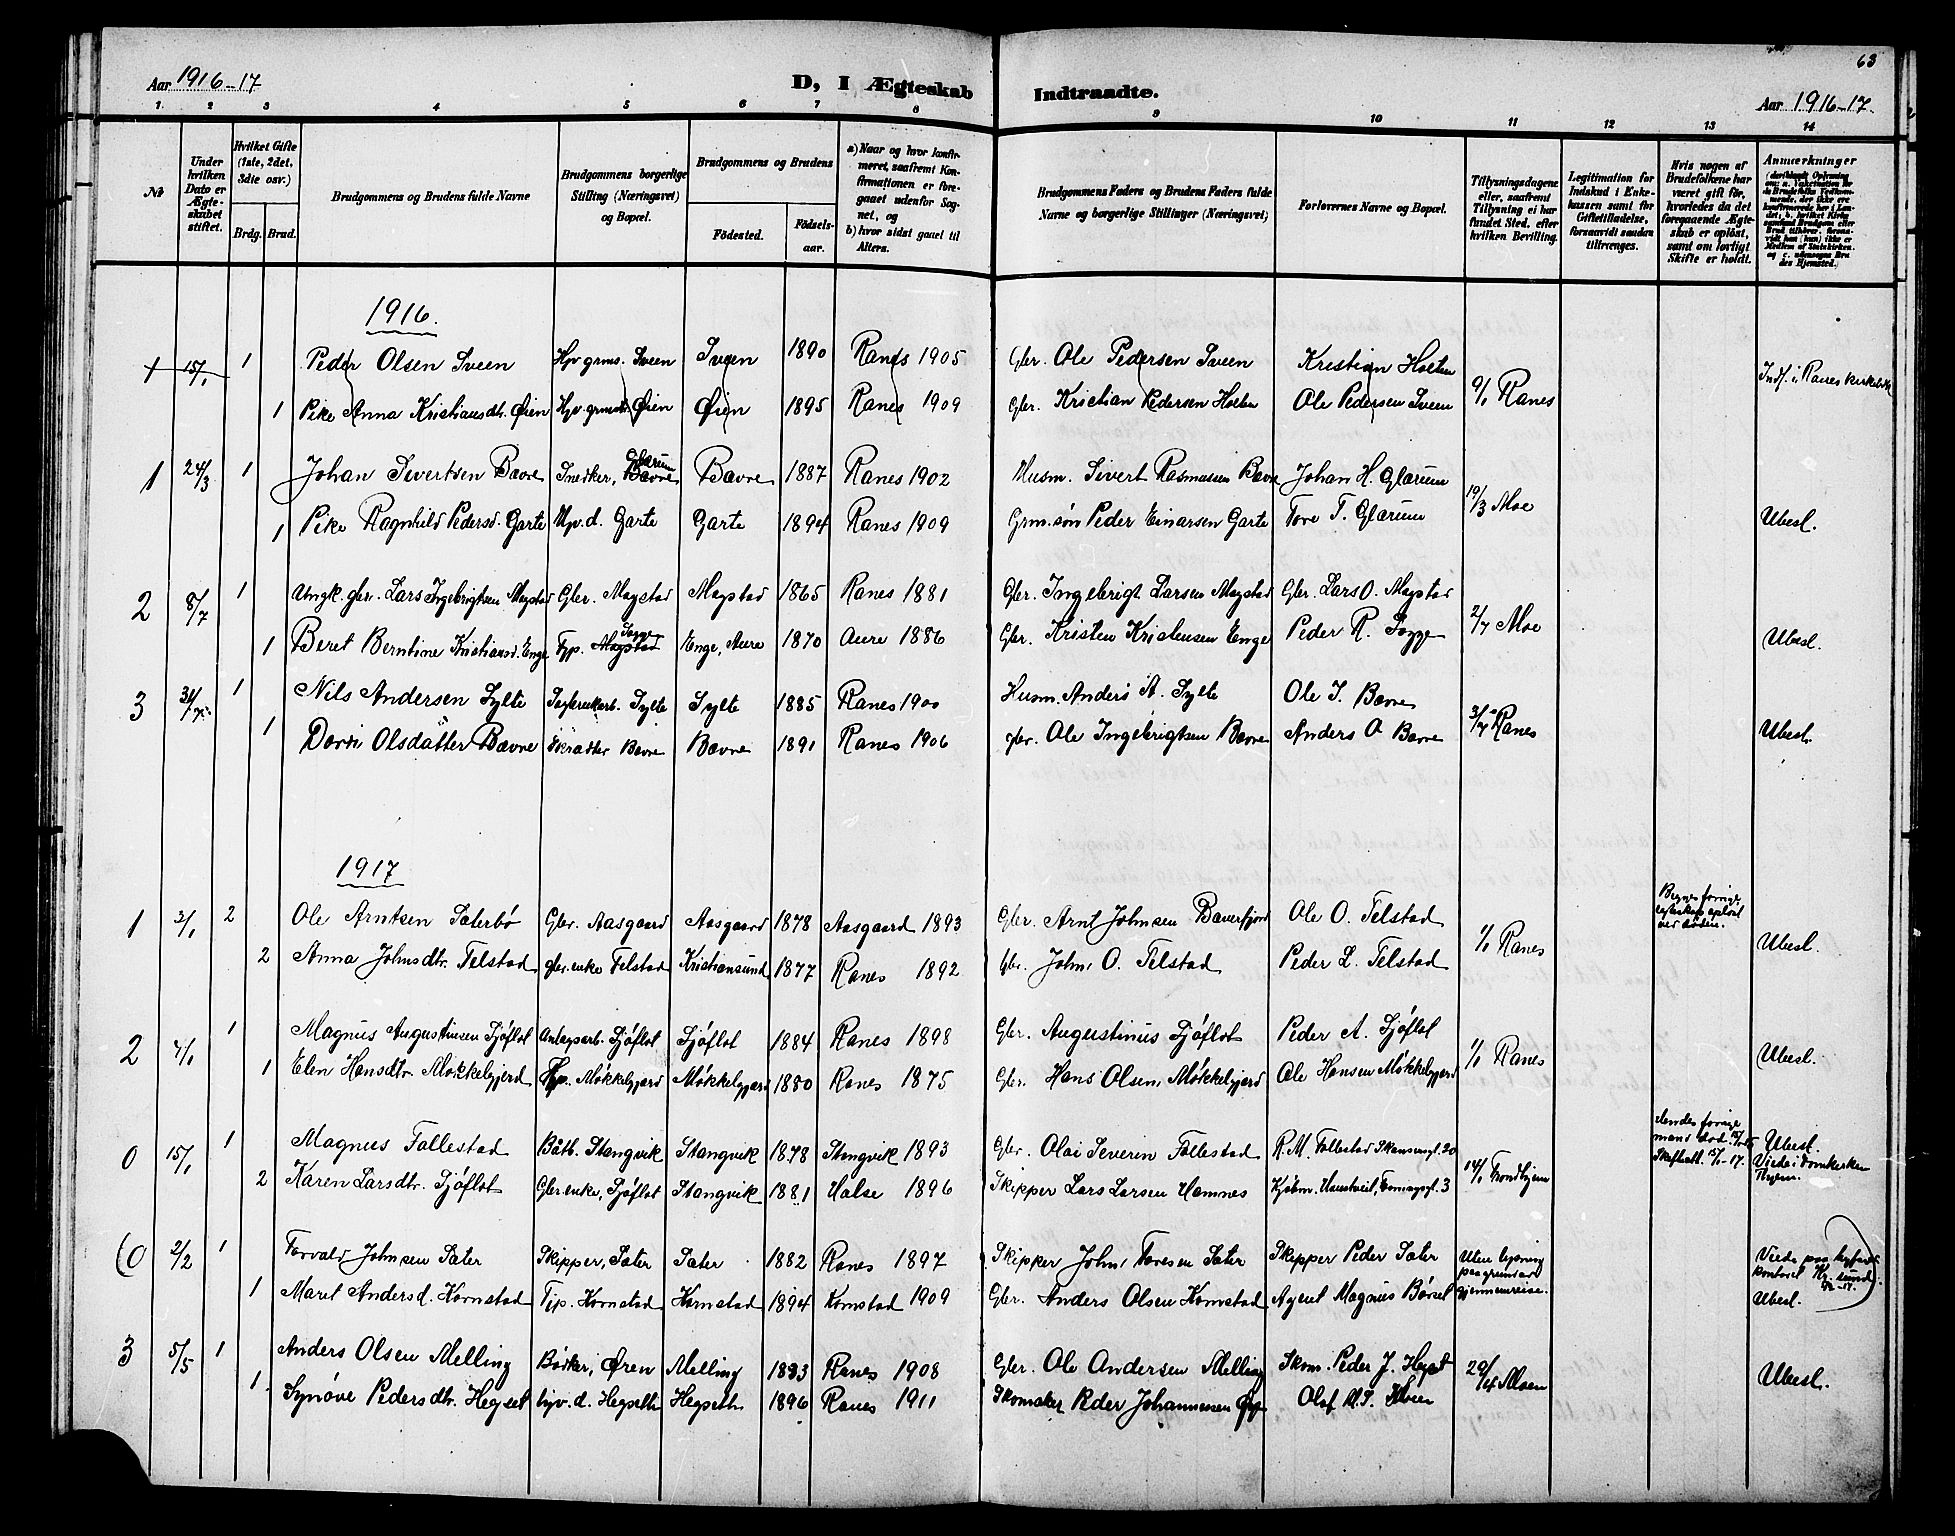 63
Aar 1916-17
D, I Ægteskab Indtraadte.
Aar 1916-17.
1. 2 3 4 5 6 7 8 9 10 11 12 13 14
No
Under hvilken Dato er Ægteskabet stiftet.
Hvilket Gifte (1ste, 2det, 3die osv.)
Brdg. Brud.
Brudgommens og Brudens fulde Navne
Brudgommens borgerlige Stilling (Næringsvei) og Bopæl.
Brudgommens og Brudens
Födested.
Födselsaar.
a) Naar og hvor konfirmeret, saafremt Konfirmationen er foregaaet udenfor Sognet, og
b) hvor sidst gaaet til Alters.
Brudgommens Faders og Brudens Faders fulde Navne og borgerlige Stillinger (Næringsvei)
Forlovernes Navne og Bopæl.
Tillysningsdagene eller, saafremt Tillysning ei har fundet Sted, efter hvilken Bevilling.
Legitimation for Indskud i Enkekassen samt for Giftetilladelse, forsaavidt saadan tiltrænges.
Hvis nogen af Brudefolkene har været gift för, hvorledes da det foregaaende Ægteskab er oplöst, samt om lovligt Skifte er holdt.
Anmærkninger
1916.
1 15/1 1 Peder Olsen Sveen Gbr. Ole Pedersen Sveen Kristian Holten
Sveen 1890 Ranes 1905
1 Pike Anna Kristiansdt. Øien Øien Øien 1895 Ranes 1909 Gbr. Kristian Pedersen Holten Ole Pedersen Sveen 9/1 Ranes
Indf. i Ranes
1 24/3 1 Johan Sivertsen Bævre Snedker, Bævre Glærum Bævre 1887 Ranes 1902 Husm. Sivert Rasmussen Bævre Johan H. Glærum
1 Pike Ragnhild Pedersd. Garte Hjv.d. Garte Garte 1894 Ranes 1909 Grm.søn Peder Einarsen Garte Tore T. Glærum 19/3 Moe Ubesl.
2 8/7 1 Ungk. gbr. Lars Ingebrigtsen Mogstad Gbr. Mogstad Mogstad 1865 Ranes 1881 Gbr. Ingebrigt Larsen Mogstad Gbr. Lars O. Mogstad
1 Beret Berntine Kristiansd. Enge Mogstad Enge, Aure 1870 Aure 1886 Gbr. Kristen Kristensen Enge Peder R. 2/7 Moe Ubesl.
3 1 Nils Andersen Sylte Sylte Sylte 1885 Ranes 1900 Husm. Anders A. Sylte Ole I. Bævre
1 Olsdatter Bævre Bævre Bævre 1891 Ranes 1906 gbr. Ole Ingebrigtsen Bævre Anders O Bævre Ranes Ubesl.
1917
1 3/1 2 Ole Arntsen Sæterbø Gbr. Aasgaard Aasgaard 1878 Aasgaard 1893 Gbr. Arnt Johnsen Bæverfjord Ole O. Telstad
Begges forrige egteskap opløst ved døden.
2 Anna Johnsdtr. Telstad gbr.enke Telstad Kristiansund 1877 Ranes 1892 Gbr. John O. Telstad Peder L. Telstad 1/1 Ranes Ubesl.
2 4/1 1 Magnus Augustinusen Sjøflot Anlegsarb. Sjøflot Sjøflot 1884 Ranes 1898 Gbr. Augustinus Sjøflot Peder A. Sjøflot
1 Elen Hansdtr. Møkkelgjerd Møkkelgjerd Møkkelgjerd 1880 Ranes 1875 Gbr. Hans Olsen, Møkkelgjerd Ole Hansen Møkkelgjerd 1/1 Ranes Ubesl.
0 15/1 1 Magnus Follestad Båtb. Stangvik Stangvik 1878 Stangvik 1893 Gbr. Olai Severin Follestad R. M. Follestad
Hendes forrige mand død Ubesl. Viede i Domkirken
2 Karen Larsdtr. Sjøflot Gbr.enke, Sjøflot Stangvik 1881 Halse 1896 Skipper Lars Larsen Hamnes 14/1 Trondhjem
(0 2/2 1 Torvald Johnsen Sæter Skipper, Sæter Sæter 1882 Ranes 1897 Skipper John Toresen Sæter Skipper Peder Sæter Uten lysning paa grund av gjennemreise.
1 Maret Andersd. Kornstad Tjp. Kornstad Kornstad 1894 Kornstad 1909 Gbr. Anders Olsen Kornstad Agent Magnus Børset
Viede paa
kontoret
Ubesl. )
3 5/5 1 Anders Olsen Melling Bødker, Øren Melling 1893 Ranes 1908 Gbr. Ole Andersen Melling Skom. Peder J.
1 Synøve Pedersdtr. Hegset hjv.d. Hegseth Hegseth 1896 Ranes 1911 Skomaker Peder Johannesen 29/4 Moen Ubesl.